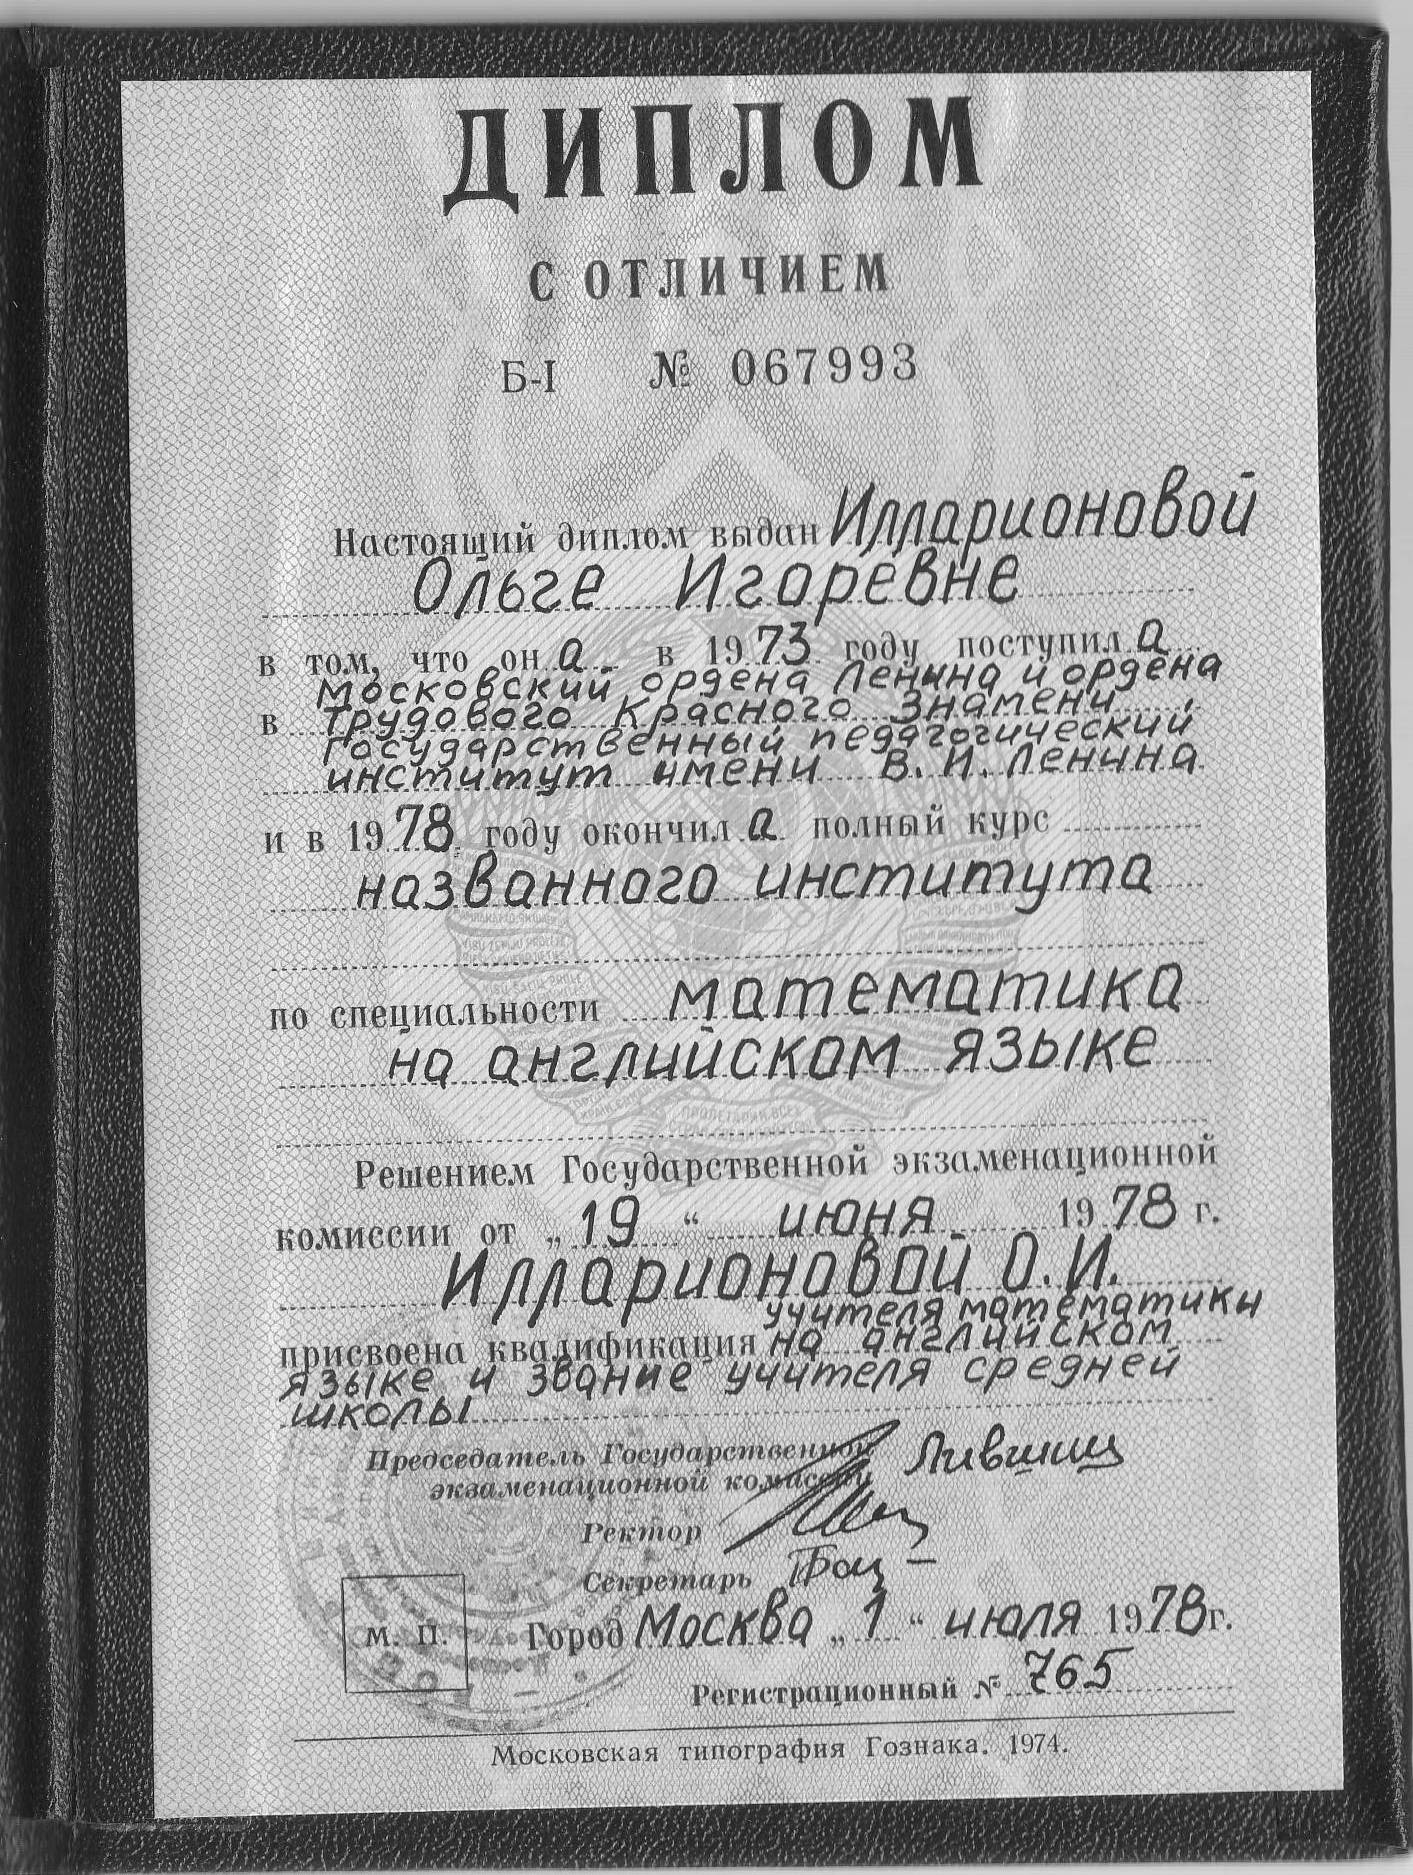 ДИПЛОМ
С ОТЛИЧИЕМ
Б-I № 067993
Настоящий диплом выдан Илларионовой
Ольге Игоревне
в том, что он а в 1973 году поступил а
Московский ордена Ленина и ордена
в Трудового Красного Знамени
государственный педагогический
институт имени В. И. Ленина
и в 1978 году окончил а полный курс
названного института
по специальности математика
на английском языке
Решением Государственной экзаменационной
комиссии от „19“ июня 1978 г.
Илларионовой О. И.
учителя математики
присвоена квалификация на английском
языке и звание учителя средней
школы
Председатель Государственной Лившиц
экзаменационной комиссии
Ректор
Секретарь
М. П. Город Москва „1“ июля 1978 г.
Регистрационный № 765
Московская типография Гознака. 1974.